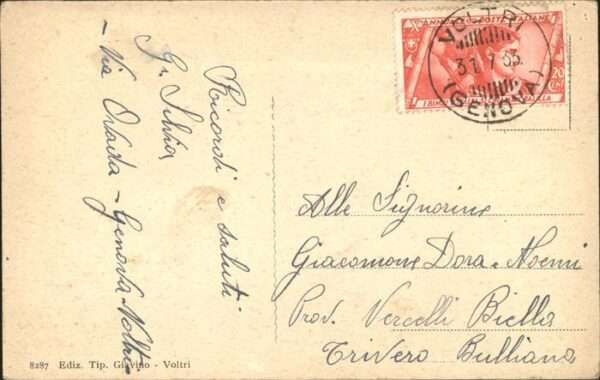 Ricordi e saluti
G. Silvia
- Via Ovada - Genova Voltri -
VOLTRI
31 7 33
(GENOVA)
20
Alle Signorine
Giacomone Dora - Noemi
Prov. Vercelli Biella
Trivero Bulliana
8287 Ediz. Tip. Giavino - Voltri